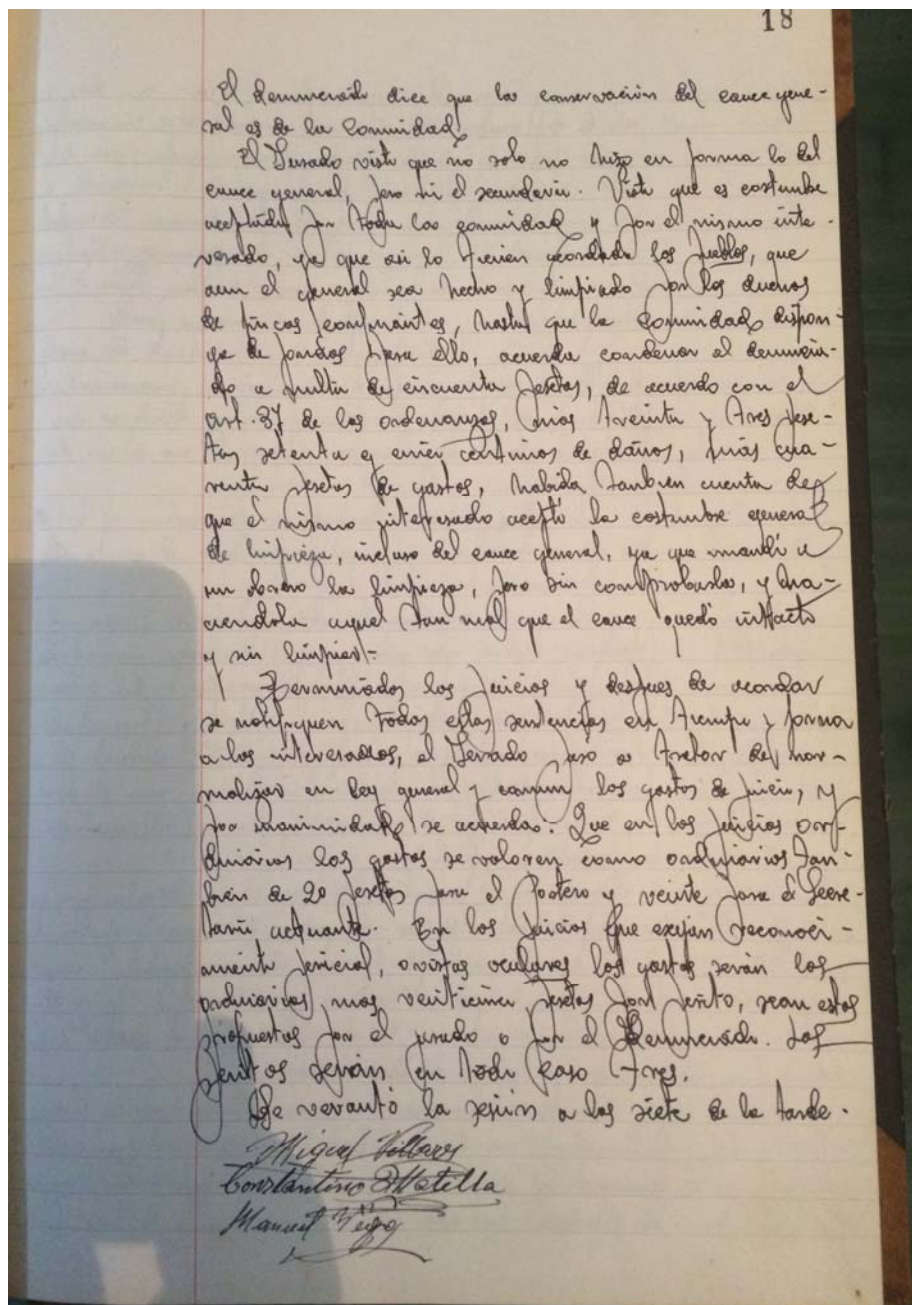 18
El denunciado dice que la conservación del cauce gene-
ral es de la Comunidad.
El Jurado visto que no solo no hizo en forma lo del
cauce general, pero ni el secundario. Visto que es costumbre
aceptada por toda la comunidad y por el mismo inte-
resado, ya que asi lo tienen acordado los pueblos, que
aun el general sea hecho y limpiado por los dueños
de fincas confinantes, hasta que la comunidad dispon-
ga de fondos para ello, acuerda condenar al denuncia-
do a multa de cincuenta pesetas, de acuerdo con el
art. 37 de las ordenanzas, mas treinta y tres pese-
tas setenta y cinco centimos de daños, más cua-
renta pesetas de gastos, habida tambien cuenta de
que el mismo interesado aceptó la costumbre general
de limpieza, incluso del cauce general, ya que mandó a
un obrero la limpieza, pero sin comprobarla, y ha-
ciendola aquel tan mal que el cauce quedó intacto
y sin limpiar.-
Terminados los juicios y despues de acordar
se notifiquen todas estas sentencias en tiempo y forma
a los interesados, el Jurado pasó a tratar de nor-
malizar en ley general y comun los gastos de juicio, y
por unanimidad se acuerda: Que en los juicios or-
dinarios los gastos se valoren como ordinarios tam-
bien de 20 pesetas para el Portero y veinte para el Secre-
tario actuante. En los juicios que exijan reconoci-
amiento pericial, o vistas oculares los gastos serán los
ordinarios, mas veinticinco pesetas por perito, sean estos
propuestos por el jurado o por el Denunciado. Los
peritos serán en todo caso tres.
Se levantó la sesión a las siete de la tarde.
Miguel Villares
Constantino Matilla
Manuel Vega